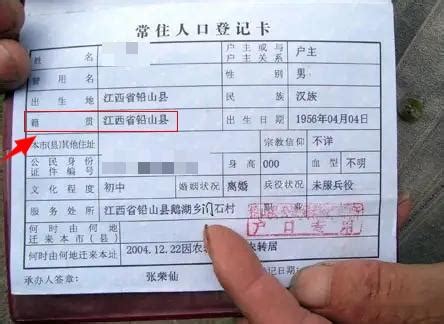 常住人口登记卡
姓 名 户主或与户主关系 户主
曾用名 性别 男
出生地 江西省铅山县 民族 汉族
籍贯 江西省铅山县 出生日期 1956年04月04日
本市(县)其他住址 宗教信仰 不详
公民身份证件编号 身高 000 血型 不明
文化程度 初中 婚姻状况 离婚 兵役状况 未服兵役
服务处所 江西省铅山县鹅湖乡 石村
何时由何地迁来本市(县)
户口专用
何时由何地迁来本址 2004.12.22因农 转居
承办人签章: 张荣仙 记日期